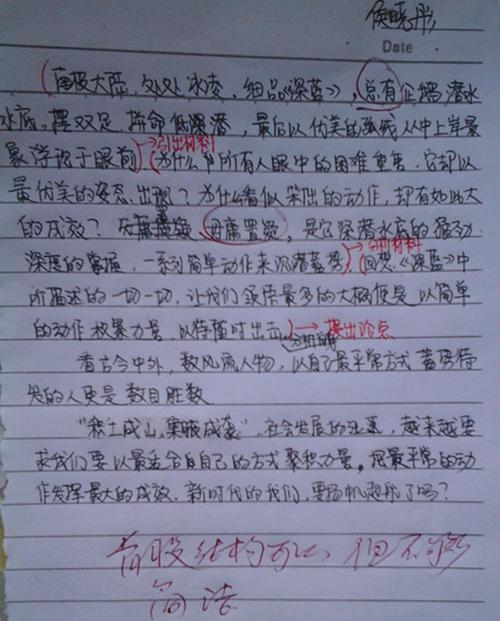 侯晓彤
Date
南极大陆,处处冰凌,细品《深蓝》,总有企鹅潜水
水底,摆双足,拼命低深潜,最后以优美的弧线从中上岸景
象浮现于眼前 引出材料 为什么中所有人眼中的困难重重,它却以
最优美的姿态,出现?为什么看似笨拙的动作,却有如此大
的成效?无毋庸置疑,是它深潜水底的
深度的掌握,一系列简单动作来沉潜蓄势 分析材料 回想《深蓝》中
所描述的一切一切,让我们最多的大概便是以简单
的动作积聚力量,以待随时出击 提出论点
看古今中外,数风流人物,以自己最平常方式蓄势待
发的人更是数目胜数
"积土成山,集腋成裘",社会发展的迅速,越来越要
求我们要以最适合自己的方式聚积力量,把最平常的动
作发挥最大的成效,新时代的我们,要扬帆起航了吗?
首段结构可以,但不够
简洁